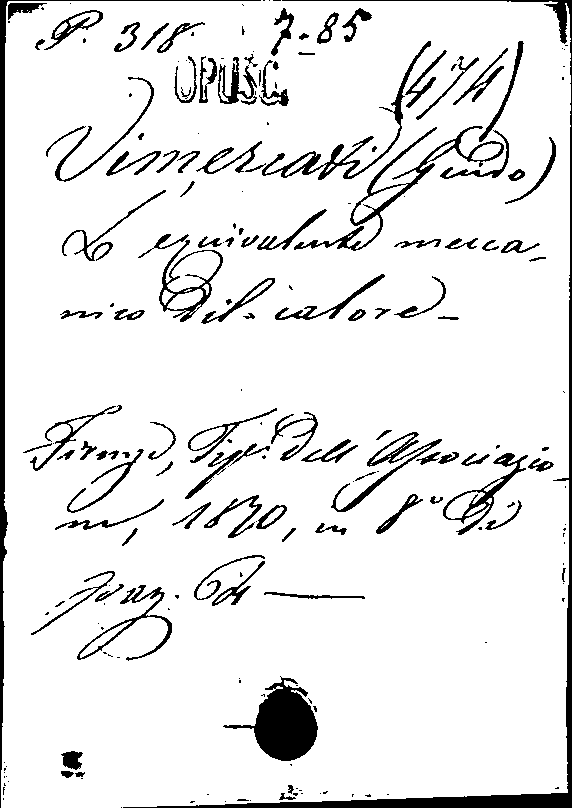 P. 318. 7-85
OPUSC.
(474)
Vimercati (Guido)
L'equivalente mecca-
nico del calore -
Firenze, Tip. dell'Associazio-
ne, 1870, in 8° di
pag.